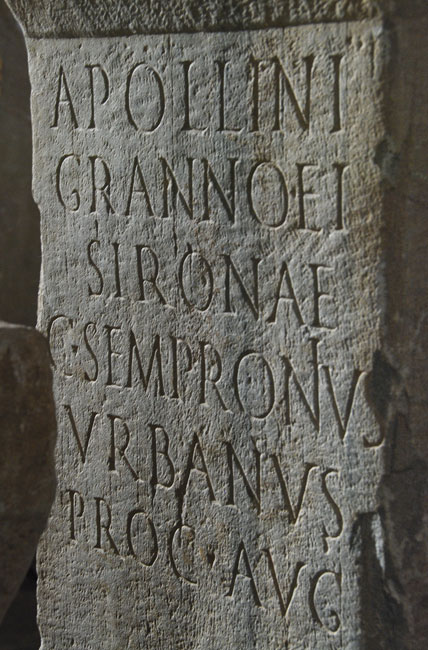 APOLLINI
GRANNO ET
SIRONAE
C·SEMPRONIVS
VRBANVS
PROC·AVG